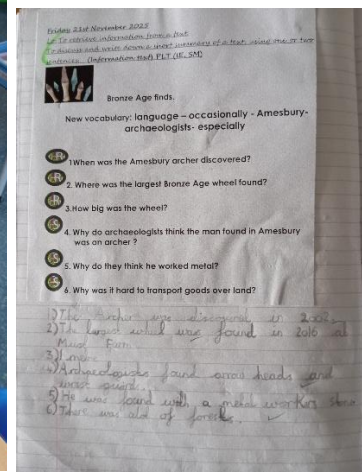 Friday 21st November 2025
To retrieve information from a text
To discuss and write down a short summary of a text using one or two
sentences. (Information text) PLT (IE, SM)
Bronze Age finds.
New vocabulary: language – occasionally - Amesbury-
archaeologists- especially
R 1 When was the Amesbury archer discovered?
R 2. Where was the largest Bronze Age wheel found?
R 3. How big was the wheel?
S 4. Why do archaeologists think the man found in Amesbury
was an archer ?
S 5. Why do they think he worked metal?
S 6. Why was it hard to transport goods over land?
1) The Archer was discovered in 2002
2) The largest wheel was found in 2016 at
Must Farm
3) 1 metre
4) Archaeologists found arrow heads and
wrist
5) He was found with a metal workers stone
6) There was alot of forests.